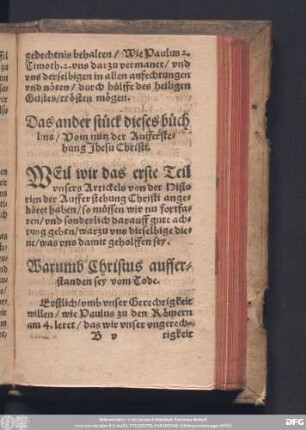 gedechtnis behalten / Wie Paulus 2.
Timoth. 2. vns dar zu vermanet / vnd
vns derselbigen in allen anfechtungen
vnd nöten / durch hülffe des heiligen
Geistes / trösten mögen.
Das ander stück dieses büch
lins / Vom nutz der Aufferste-
hung Jhesu Christi.
WEil wir das erste Teil
vnsers Artickels von der Histo
rien der Aufferstehung Christi ange-
höret haben / so müssen wir nu fortfa-
ren / vnd sonderlich darauff gute ach-
tung geben / warzu vns dieselbige die-
ne / was vns damit geholffen sey.
Warumb Christus auffer-
standen sey vom Tode.
Erstlich / vmb vnser Gerechtigkeit
willen / wie Paulus zu den Römern
am 4. leret / das wir vnser vngerech-
B v
tigkeit
DFG